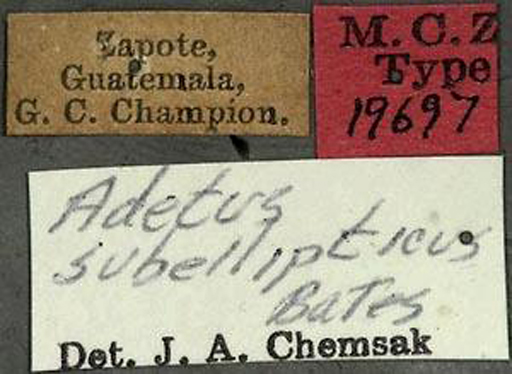 Zapote,
Guatemala,
G. C. Champion.
M. C. Z
Type
19697
Adetus
subellipticus
Bates
Det. J. A. Chemsak